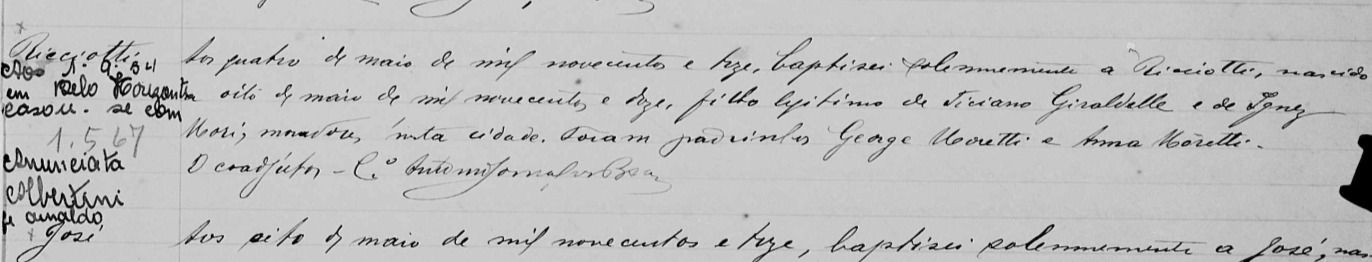 Ricciotti
Aos quatro de maio de mil novecentos e treze, baptisei solemnemente a Ricciotti, nascido
a oito de maio de mil novecentos e doze, filho legitimo de Ticiano Giraldelle e de Ignez
Mori, moradores n'esta cidade. Foram padrinhos George Moretti e Anna Moretti.
O coadjutor - C.º Antonio
em Belo Horizonte
casou-se com
1.5.67
Anunciata
Albertini
de Arnaldo
José
Aos oito de maio de mil novecentos e treze, baptisei solemnemente a José, nas